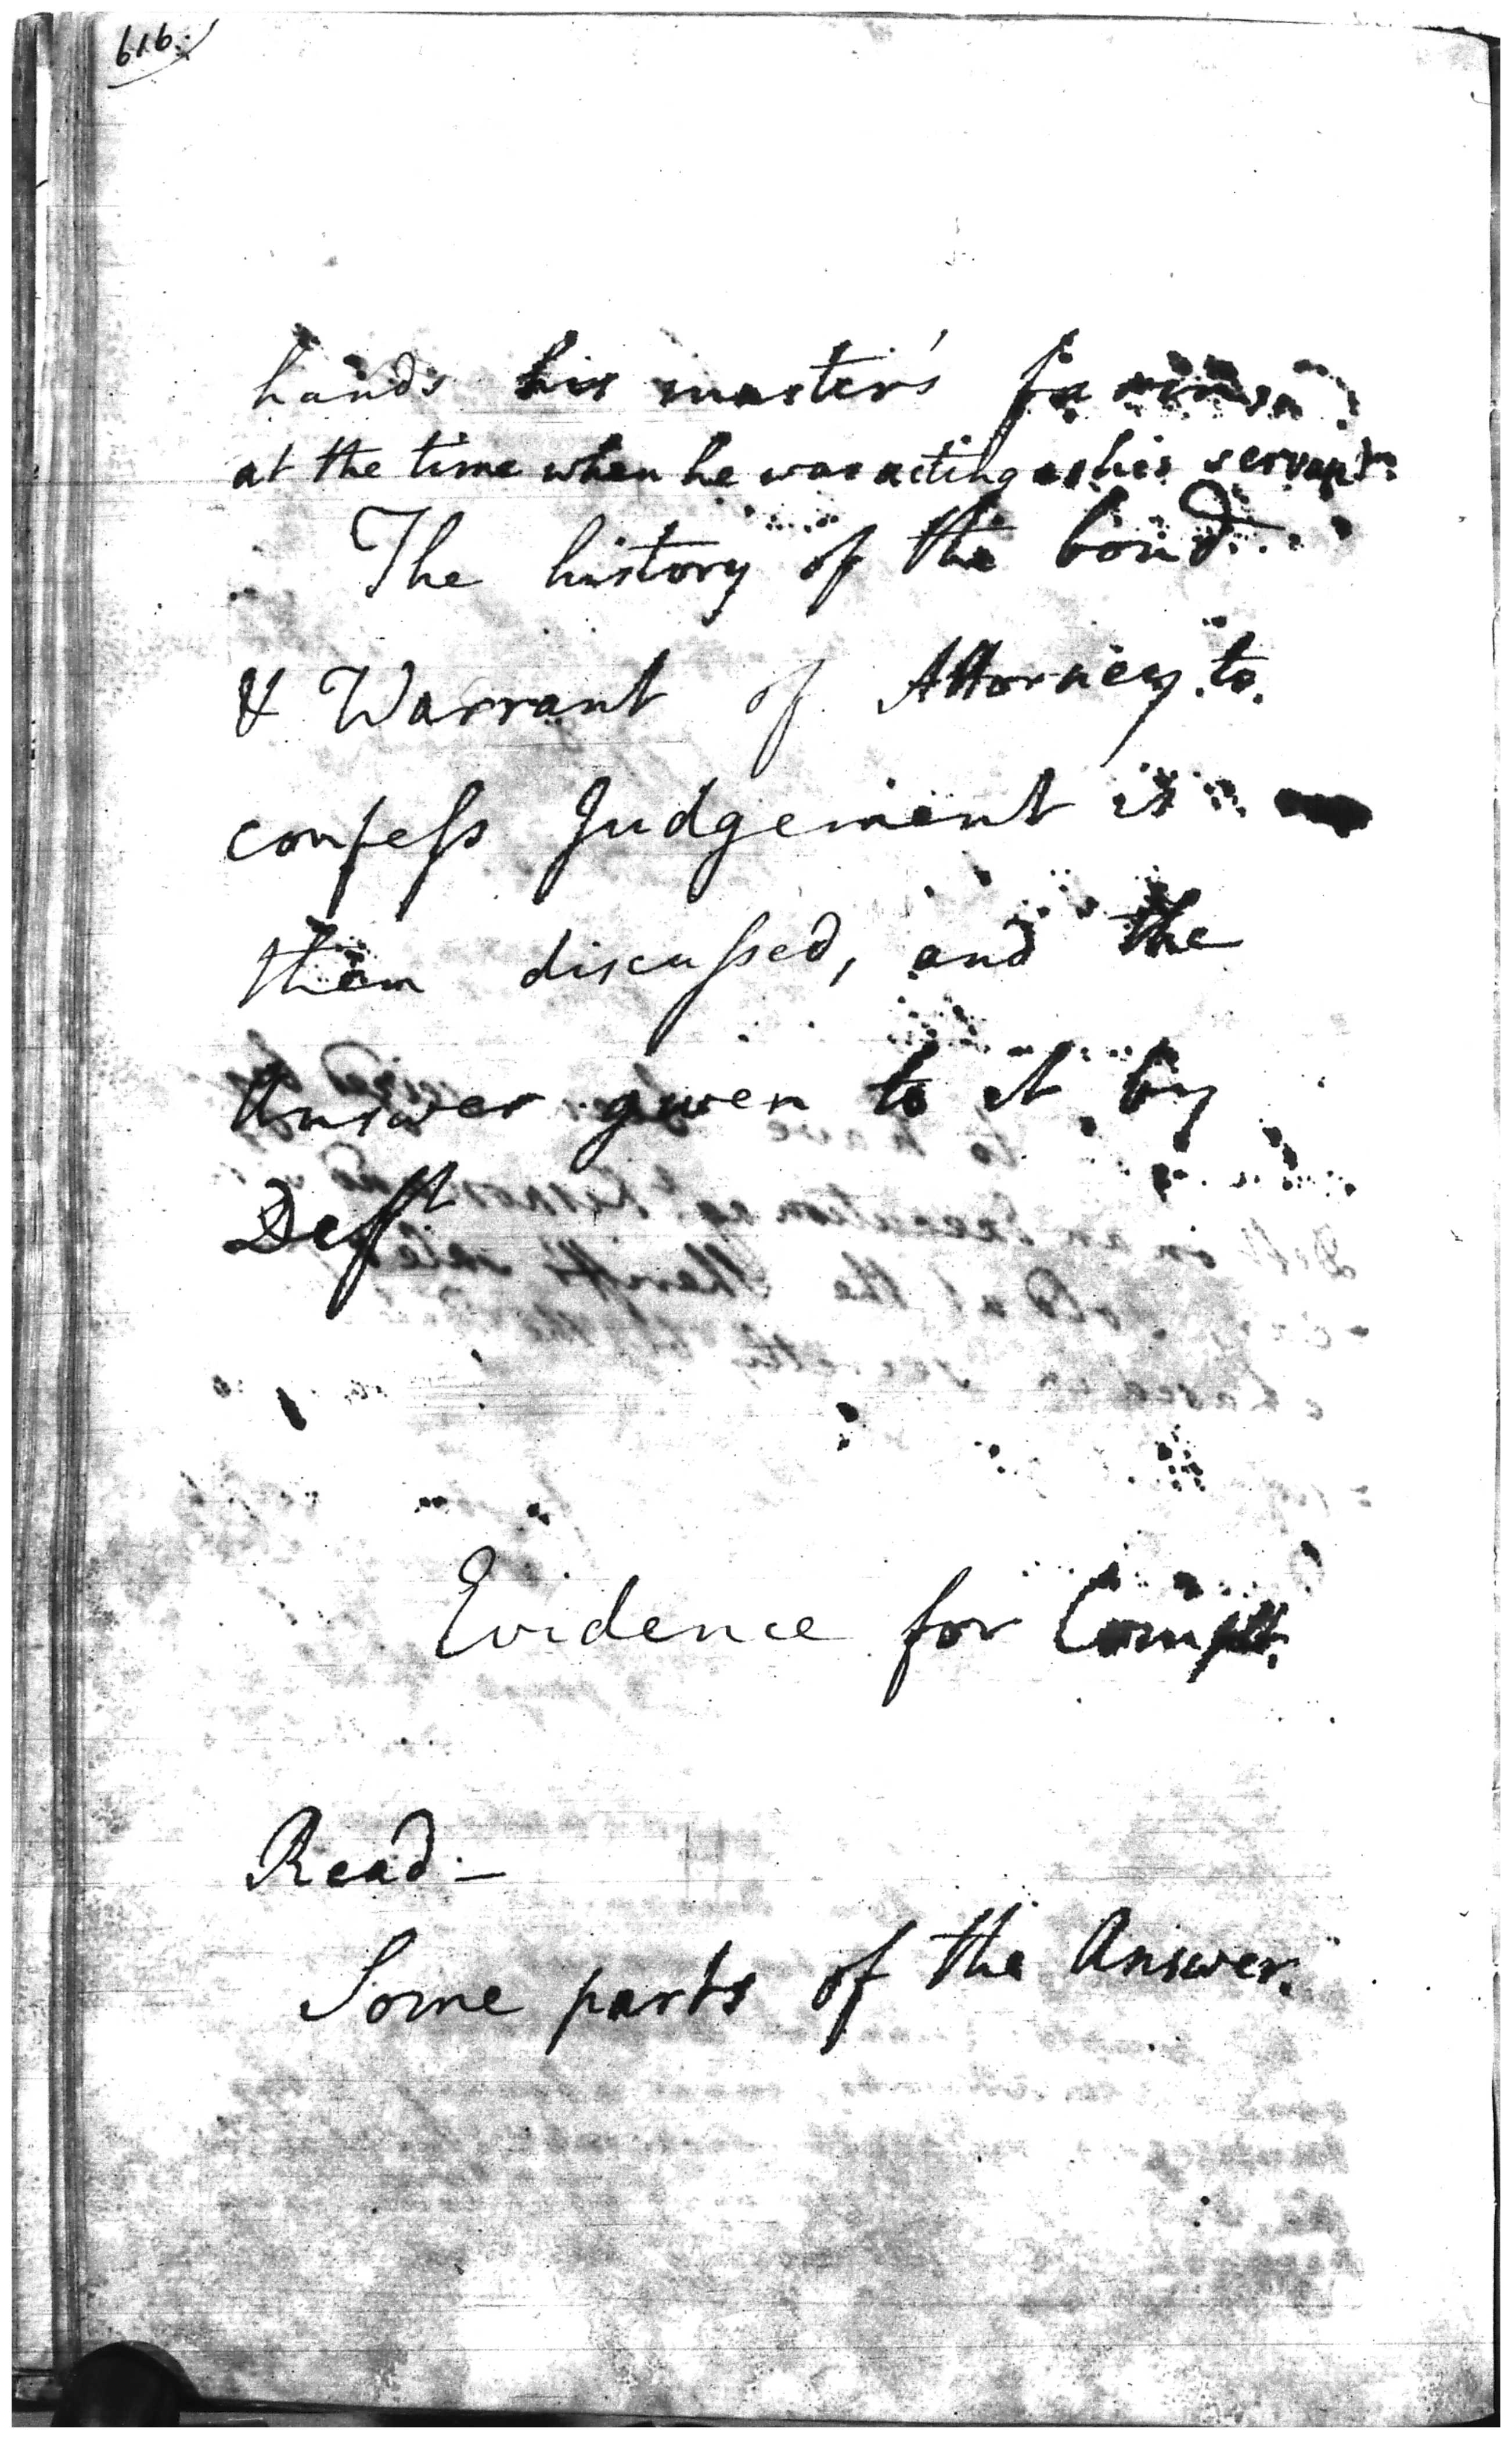 616.
hands his master's
at the time when he was acting as his servant.
The history of the bond
& Warrant of Attorney to
confess Judgement is
then discussed, and the
Answer given to it by
Defft
Evidence for Complt.
Read —
Some parts of the Answer.